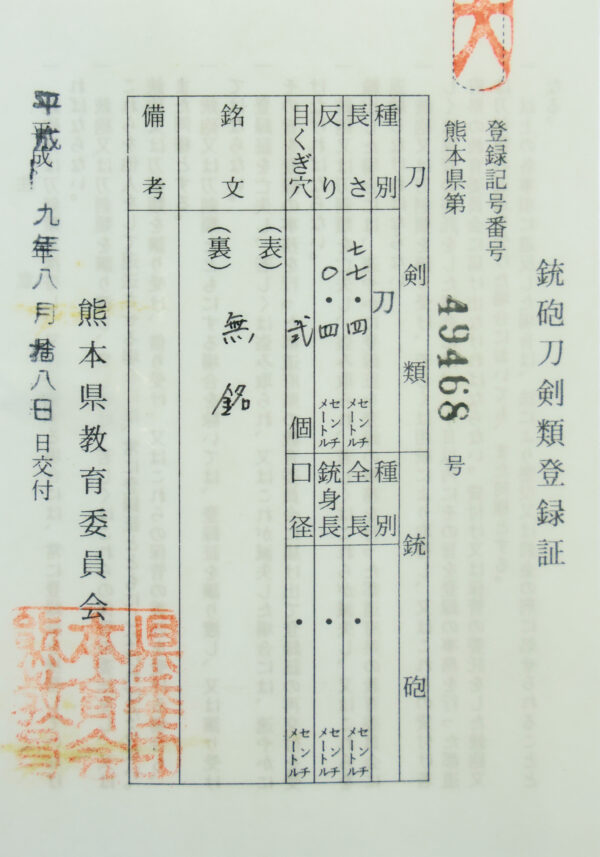 銃砲刀剣類登録証
登録記号番号
熊本県第 49468 号
刀剣類
銃砲
種別 刀
種別
長さ 七七・四 センチメートル
全長 ・ センチメートル
反り 〇・四 センチメートル
銃身長 ・ センチメートル
目くぎ穴 弐 個
口径 ・ センチメートル
銘文
(表)
(裏)
無銘
備考
熊本県教育委員会
平成 九年八月拾八日 日交付
県委印
本育会
熊教員